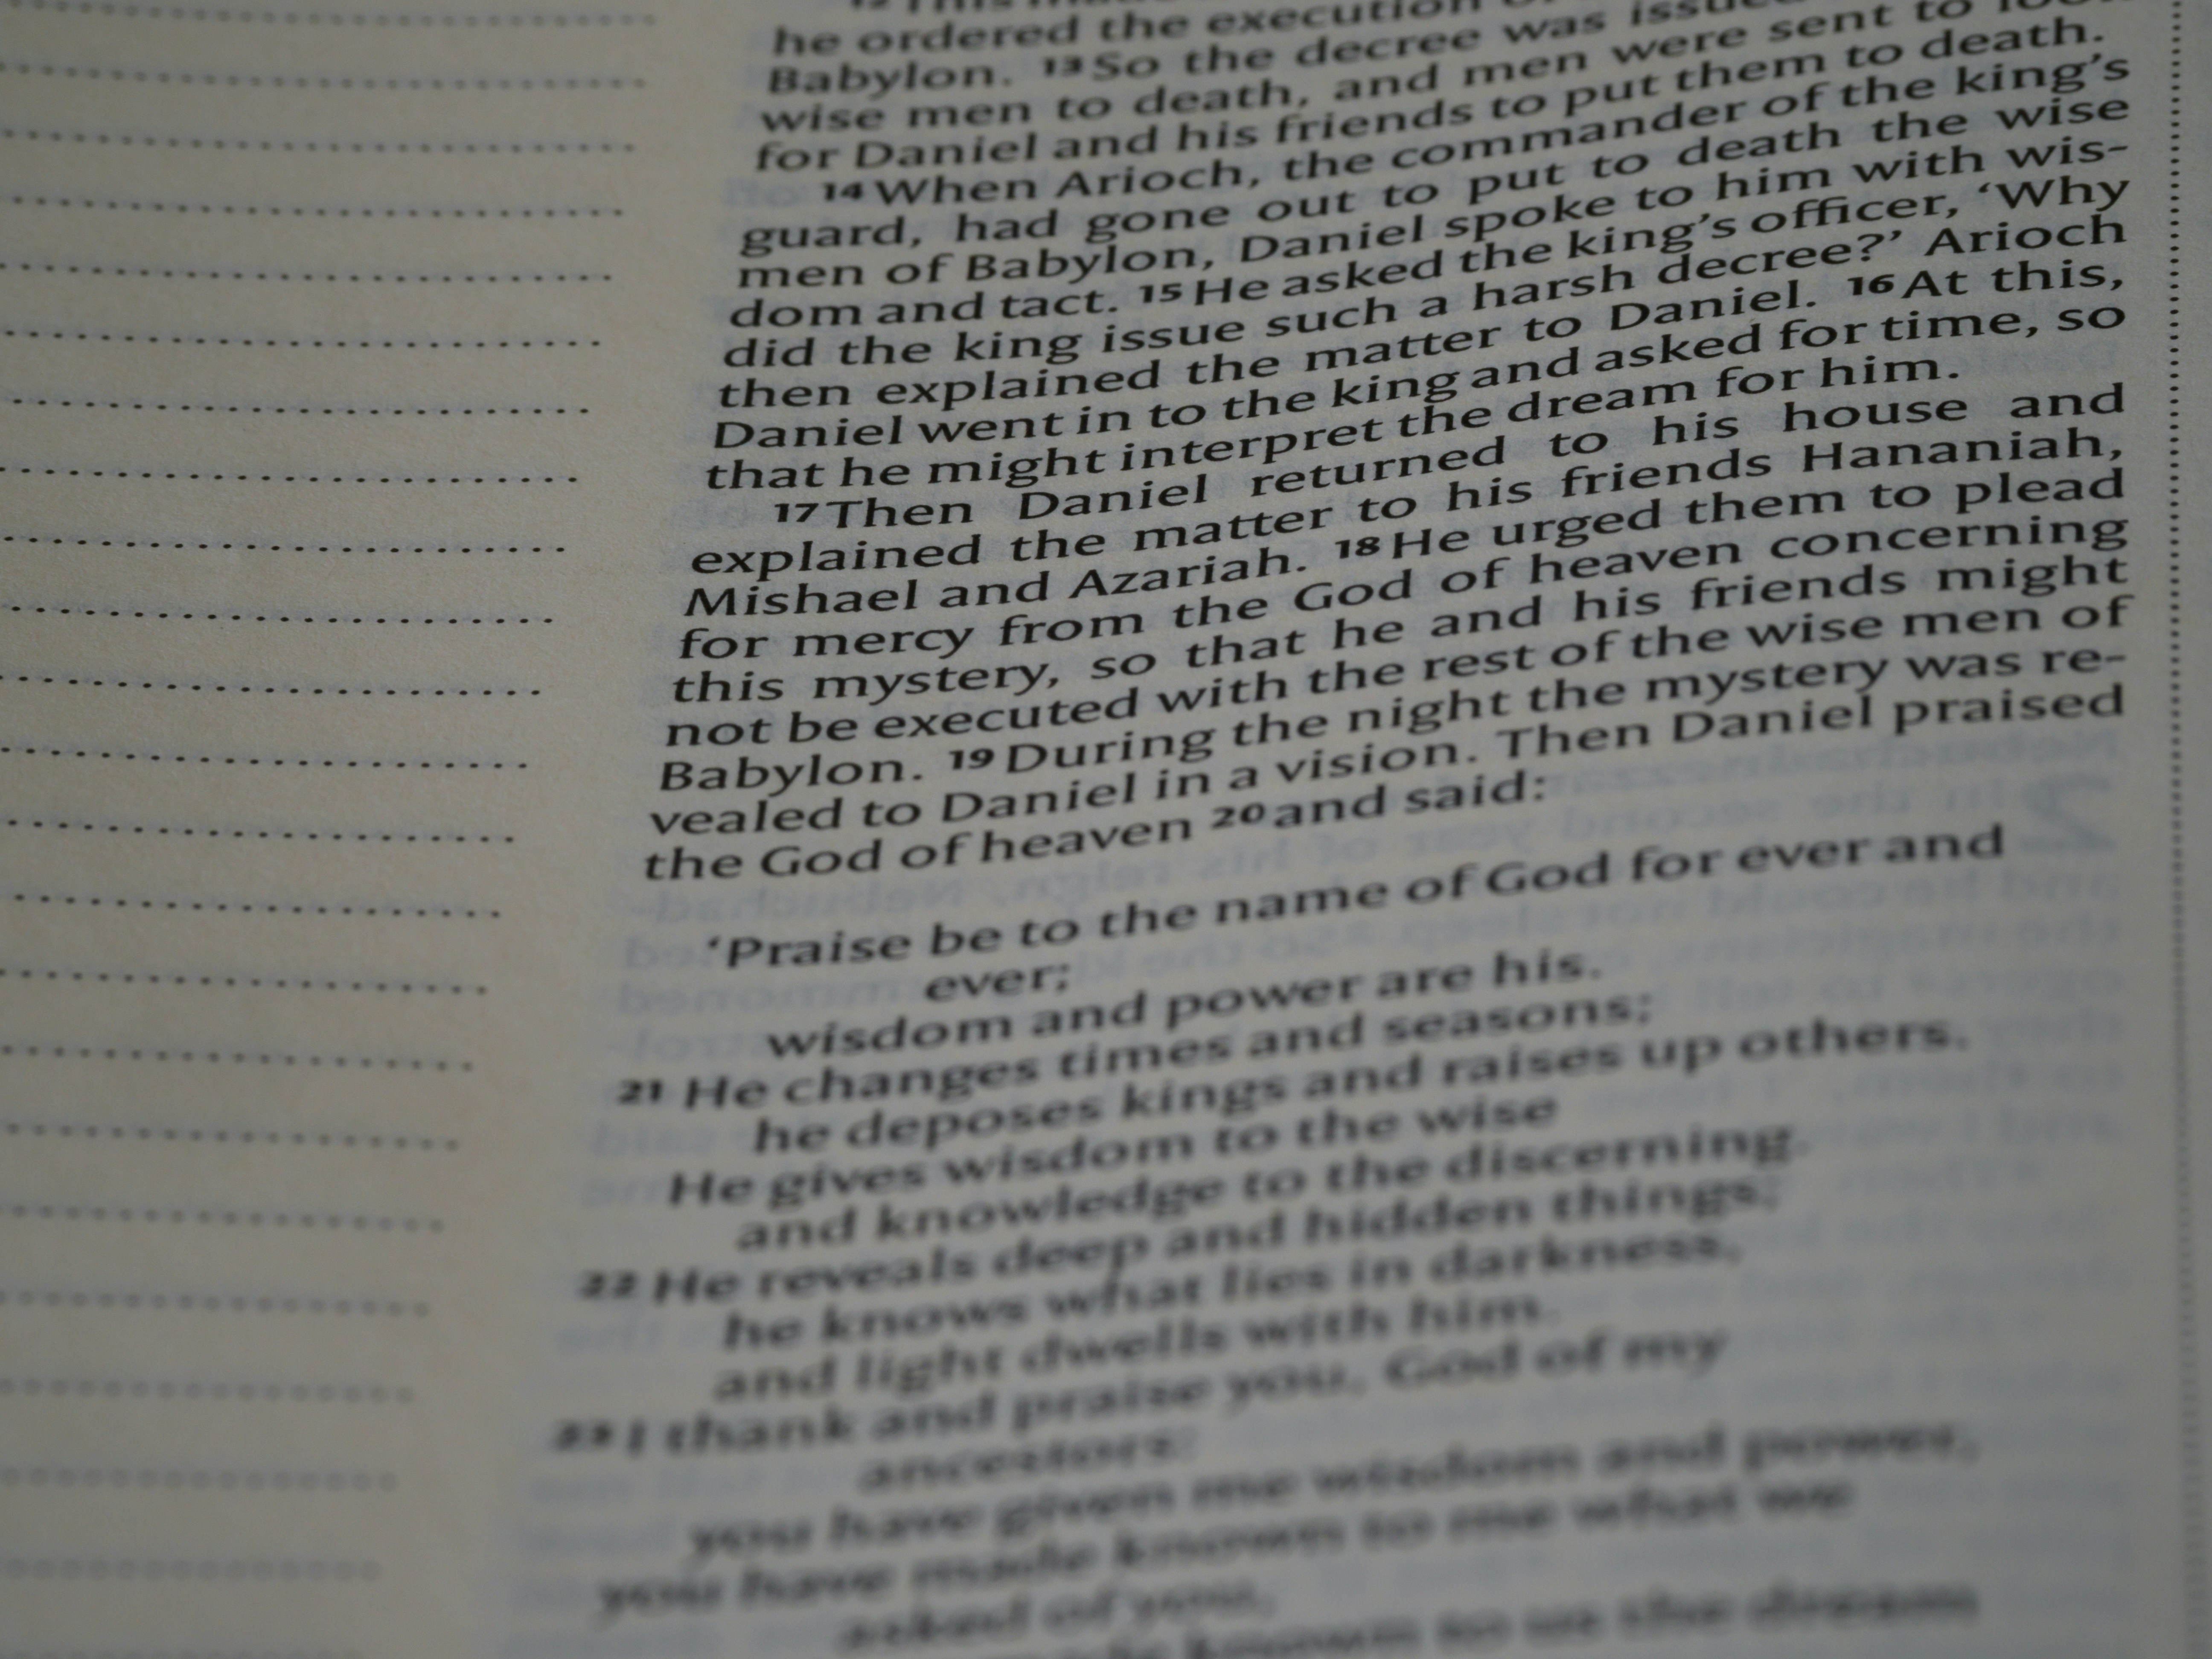 12 This made
he ordered the execution
Babylon. 13 So the decree was issued
wise men to death, and men were sent to look
for Daniel and his friends to put them to death.
14 When Arioch, the commander of the king's
guard, had gone out to put to death the wise
men of Babylon, Daniel spoke to him with wis-
dom and tact. 15 He asked the king's officer, 'Why
did the king issue such a harsh decree?' Arioch
then explained the matter to Daniel. 16 At this,
Daniel went in to the king and asked for time, so
that he might interpret the dream for him.
17 Then Daniel returned to his house and
explained the matter to his friends Hananiah,
Mishael and Azariah. 18 He urged them to plead
for mercy from the God of heaven concerning
this mystery, so that he and his friends might
not be executed with the rest of the wise men of
Babylon. 19 During the night the mystery was re-
vealed to Daniel in a vision. Then Daniel praised
the God of heaven 20 and said:
'Praise be to the name of God for ever and
ever;
wisdom and power are his.
21 He changes times and seasons;
he deposes kings and raises up others.
He gives wisdom to the wise
and knowledge to the discerning.
22 He reveals deep and hidden things;
he knows what lies in darkness,
and light dwells with him.
23 I thank and praise you, God of my
ancestors:
you have given me wisdom and power,
you have made known to me what we
asked of you,
known to us the dream